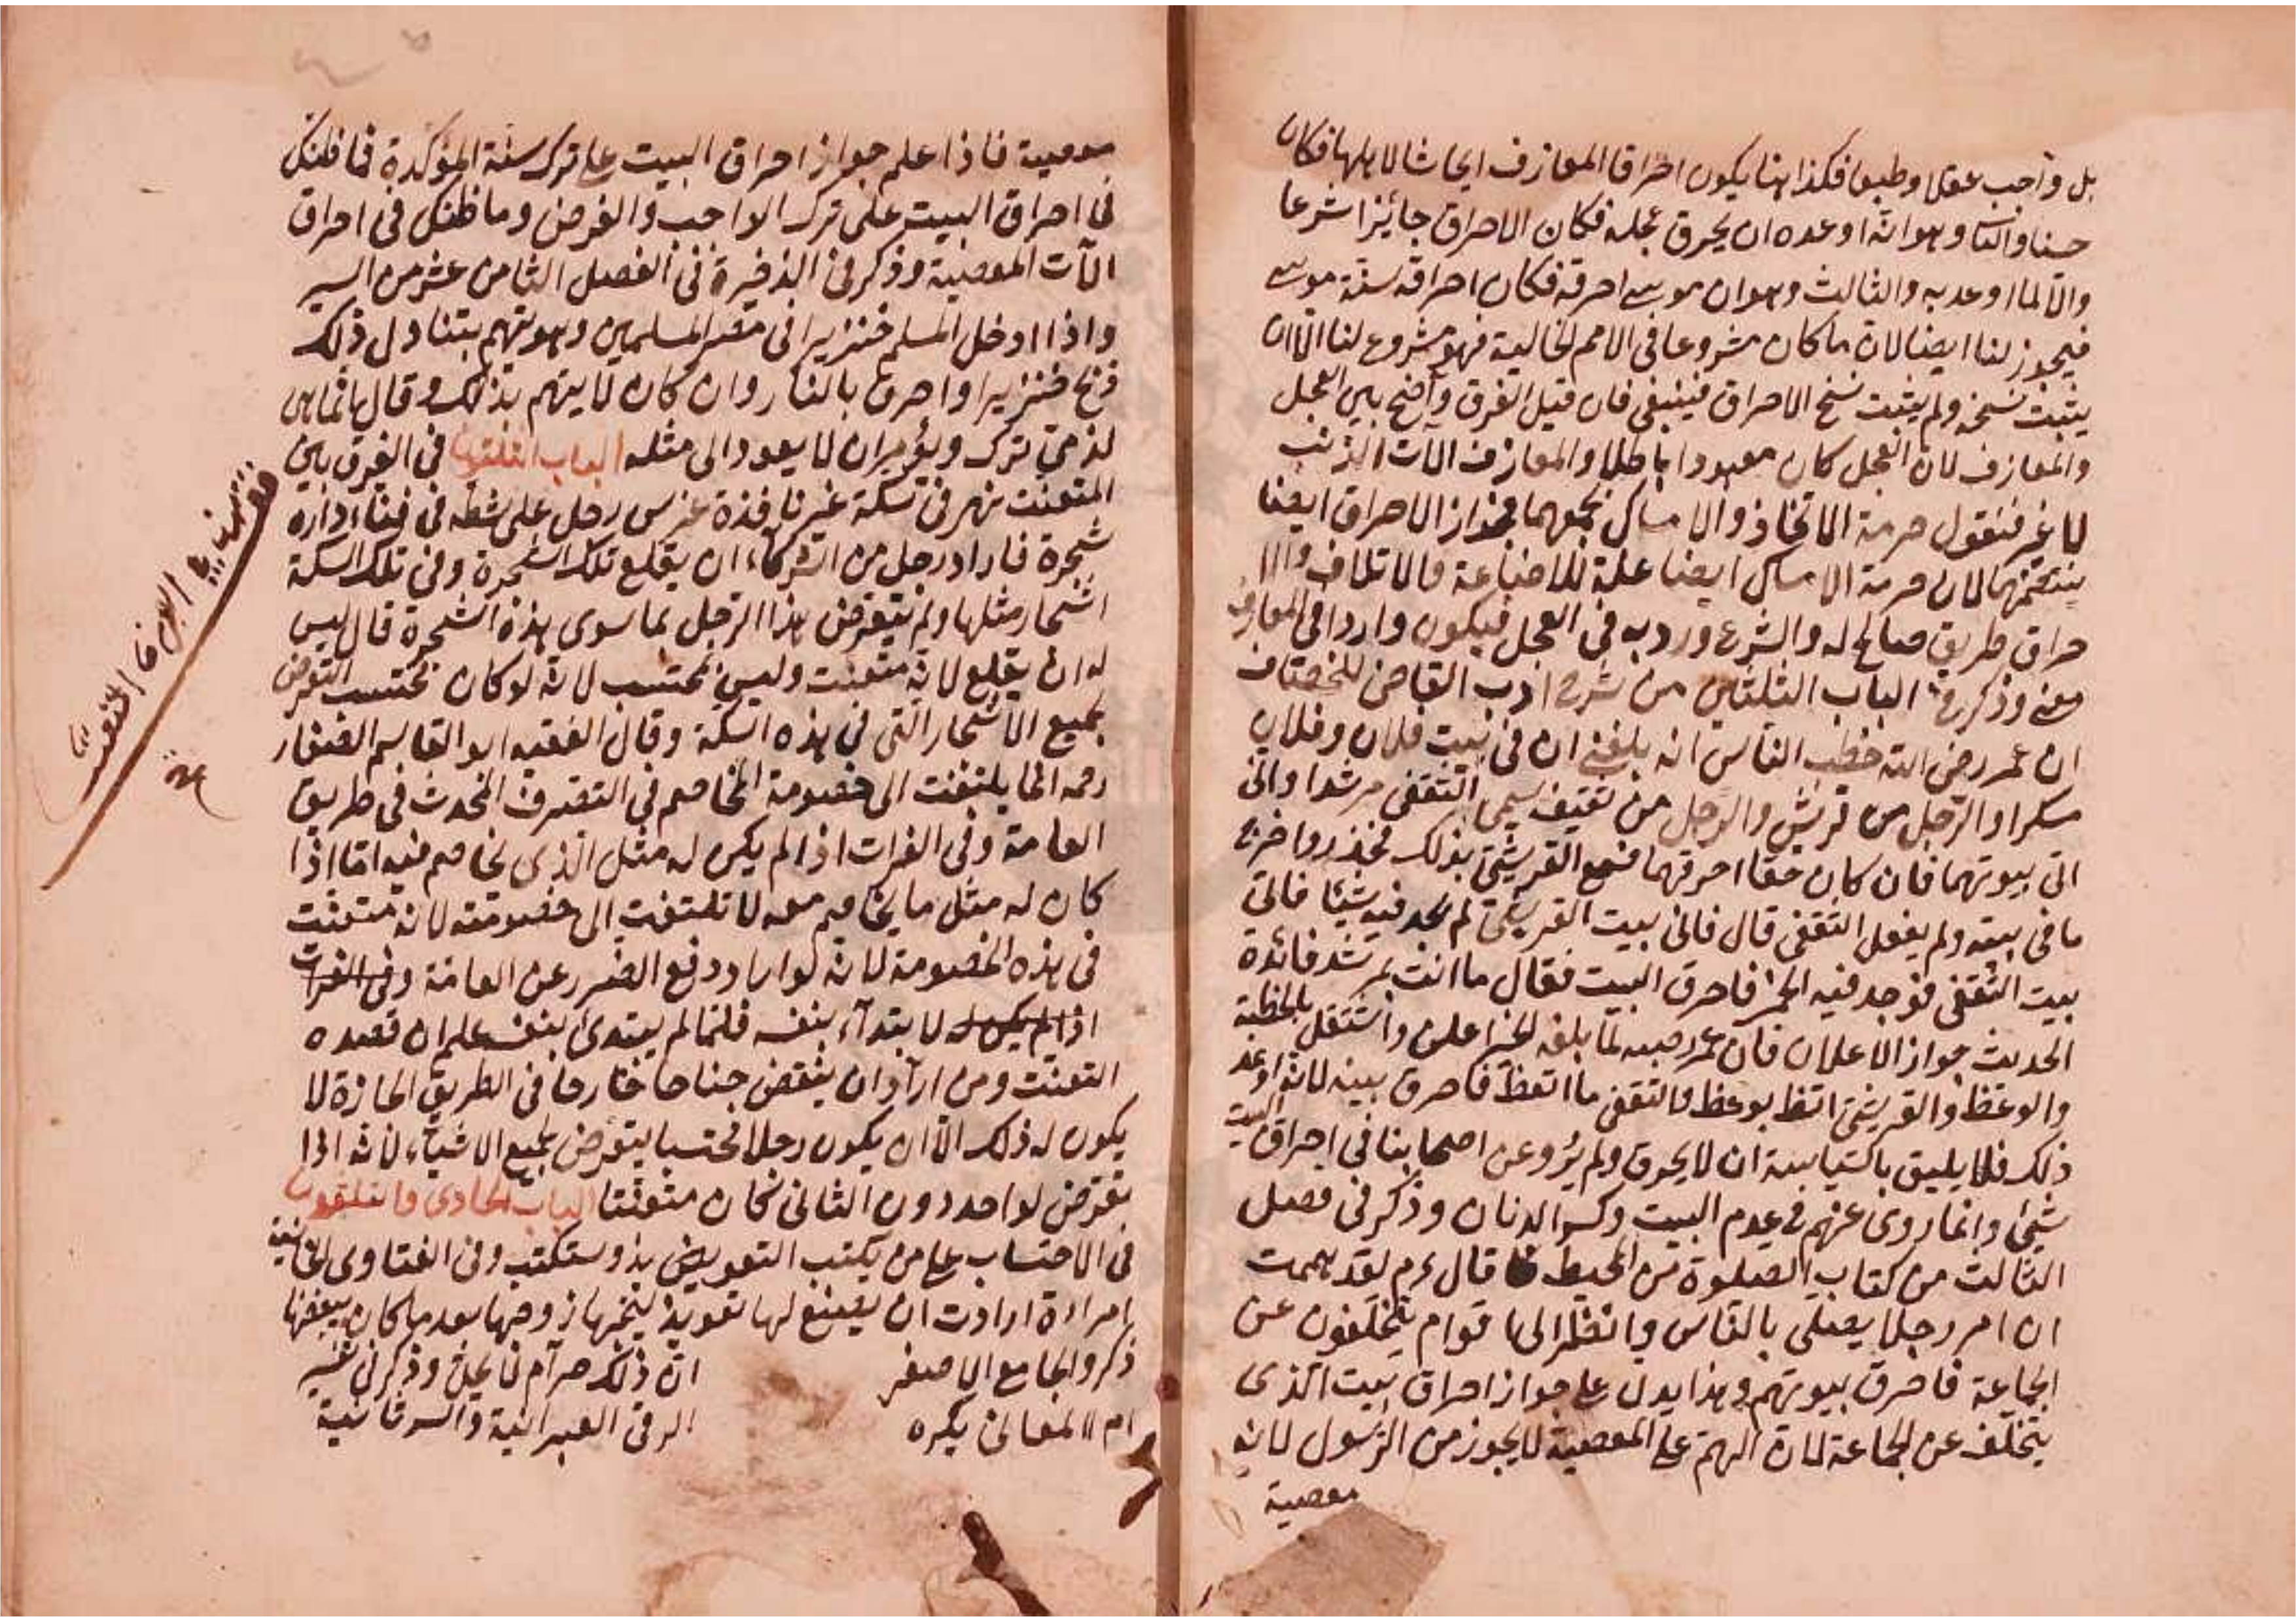 بل واجب عقلا وطبعا فكذا هنا يكون احراق المعازف ايحاشا لاهلها فكان
حسنا والثا وهو انه اوعده ان يحرق عجله فكان الاحراق جائزا شرعا
والا لما اوعد به والثالث وهو ان موسى احرقه فكان احراقه سنة موسى
فيجوز لنا ايضا لان ما كان مشروعا فى الامم الخالية فهو مشروع لنا الا ان
يثبت نسخه ولم يثبت نسخ الاحراق فينبغى فان قيل الفرق واضح بين العجل
والمعازف لان العجل كان معبودا باطلا والمعازف الات الذنب
لا غير فنقول حرمة الاتخاذ والامساك تجمعهما فجواز الاحراق ايضا
لان حرمة الامساك ايضا علة للاضاعة والاتلاف والا
حراق طريق صالح له والشرع ورد به فى العجل فيكون واردا فى المعازف
معنى وذكر فى الباب الثلثين من شرح ادب القاضى للخصاف
ان عمر رضى الله خطب الناس انه بلغنى ان فى بيت فلان وفلان
مسكرا والرجل من قريش والرجل من ثقيف يسمى الثقفى مرشدا وانى
اتى بيوتهما فان كان حقا احرقهما فسمع القرشى بذلك فحذر واخرج
ما فى بيته ولم يفعل الثقفى قال فاتى بيت القرشى لم يجد فيه شيئا فاتى
بيت الثقفى فوجد فيه الخمر فاحرق البيت فقال ما انت بمرشد فائدة
الحديث جواز الاعلان فان عمر رضى لما بلغه الخبر اعلن واشتغل بالخطبة
والوعظ والقرشى اتعظ بوعظ والثقفى ما اتعظ فاحرق بيته لانه اوعد
ذلك فلا يليق ان لا يحرق ولم يرو عن اصحابنا فى احراق البيت
شئ وانما روى عنهم فى هدم البيت وكسر الدنان وذكر فى فصل
الثالث من كتاب الصلوة من المحيط قال عم لقد هممت
ان امر رجلا يصلى بالناس وانظر الى اقوام يتخلفون عن
الجماعة فاحرق بيوتهم وهذا يدل على جواز احراق بيت الذى
يتخلف عن الجماعة لان الهم على المعصية لا يجوز من الرسول لانه
معصية
معصية فاذا علم جواز احراق البيت على ترك سنة المؤكدة فما ظنك
فى احراق البيت على ترك الواجب والفرض وما ظنك فى احراق
الآت المعصية وذكر فى الذخيرة فى الفصل الثامن عشر من السير
واذا ادخل المسلم خنزيرا فى مصر المسلمين وهو يتهم بتناول ذلك
ذبح خنزيرا واحرق بالنار وان كان لا يتهم بذلك وقال
لذمى ترك ويؤمر ان لا يعود الى مثله الباب الثلثون فى الفرق بين
المتعنت نهر فى سكة غير نافذة غرس رجل على شطه فى فناء داره
شجرة فاراد رجل من الشركاء ان يقلع تلك الشجرة وفى تلك السكة
اشجار مثلها ولم يتعرض هذا الرجل بما سوى هذه الشجرة قال ليس
له ان يقلع لانه متعنت وليس بمحتسب لانه لو كان محتسب التعرض
بجميع الاشجار التى فى هذه السكة وقال الفقيه ابو القاسم الصفار
رحمه انما يلتفت الى خصومة المخاصم فى التصرف المحدث فى طريق
العامة وفى الفرات اذا لم يكن له مثل الذى يخاصم فيه اما اذا
كان له مثل ما يخاصم معه لا تلتفت الى خصومته لانه متعنت
فى هذه الخصومة لانه لو اراد دفع الضرر عن العامة وفى الفرات
اذا لم يكن له لا بتدآء بنفسه فلما لم يبتدئ بنفسه علم ان قصده
التعنت ومن اراد ان ينقض جناحا خارجا فى الطريق الجازة لا
يكون له ذلك الا ان يكون رجلا محتسبا يتعرض بجميع الاشياء لانه اذا
تعرض لواحد دون الثانى فكان متعنتا الباب الحادى والثلثون
فى الاحتساب على من يكتب التعويض ويستكتب وفى الفتاوى الخانية
امراءة ارادت ان يصنع لها تعويذ ليحبها زوجها بعد ما كان يبغضها
ذكر والجامع الاصغر ان ذلك حرام لا يحل وذكر فى تفسير
ام المعانى يكره الرقى العبرانية والسريانية